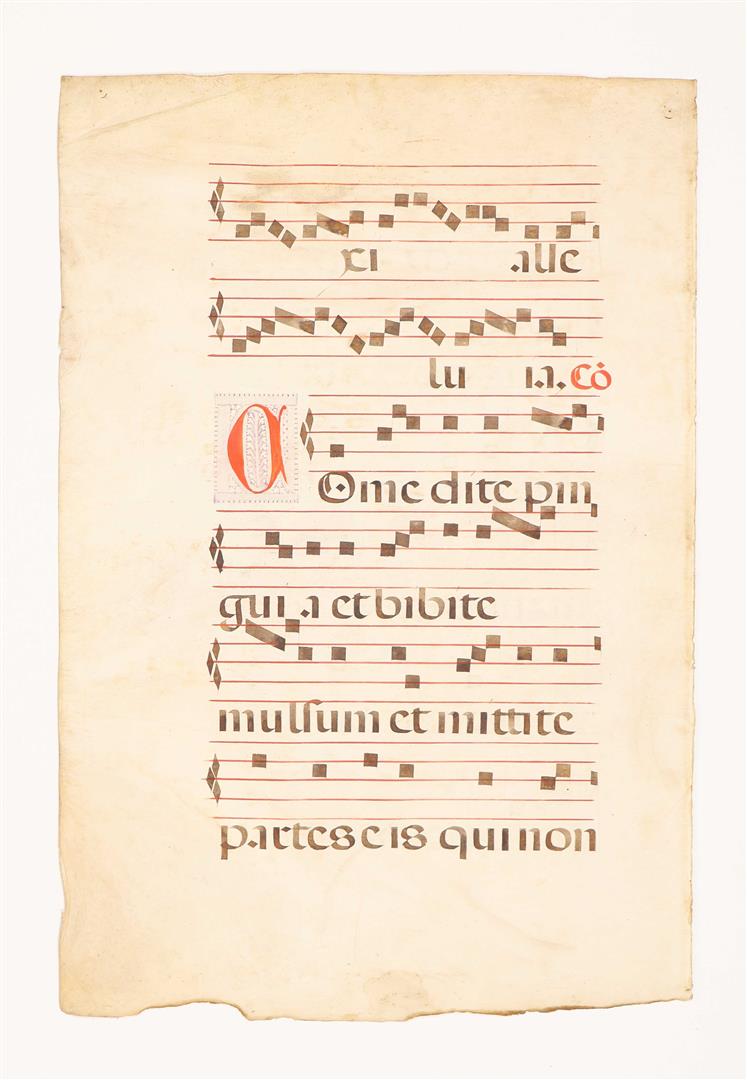 xi alle
lu ia. Cȯ
COmedite pin
guia et bibite
mulsum et mittite
partes eis qui non